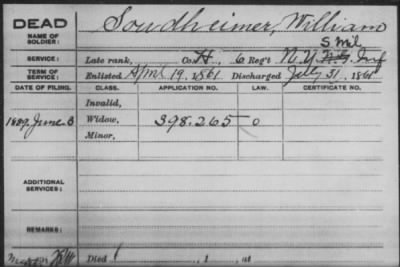 DEAD
NAME OF SOLDIER: Sondheimer, William
S. Mil
SERVICE: Late rank, Co. H, 6 Reg't N.Y. Inf
TERM OF SERVICE: Enlisted April 19, 1861 Discharged July 31, 1861
DATE OF FILING. CLASS. APPLICATION NO. LAW. CERTIFICATE NO.
Invalid,
1889, June 3 Widow, 398.265 0
Minor,
ADDITIONAL SERVICES:
REMARKS:
Died , 1 , at